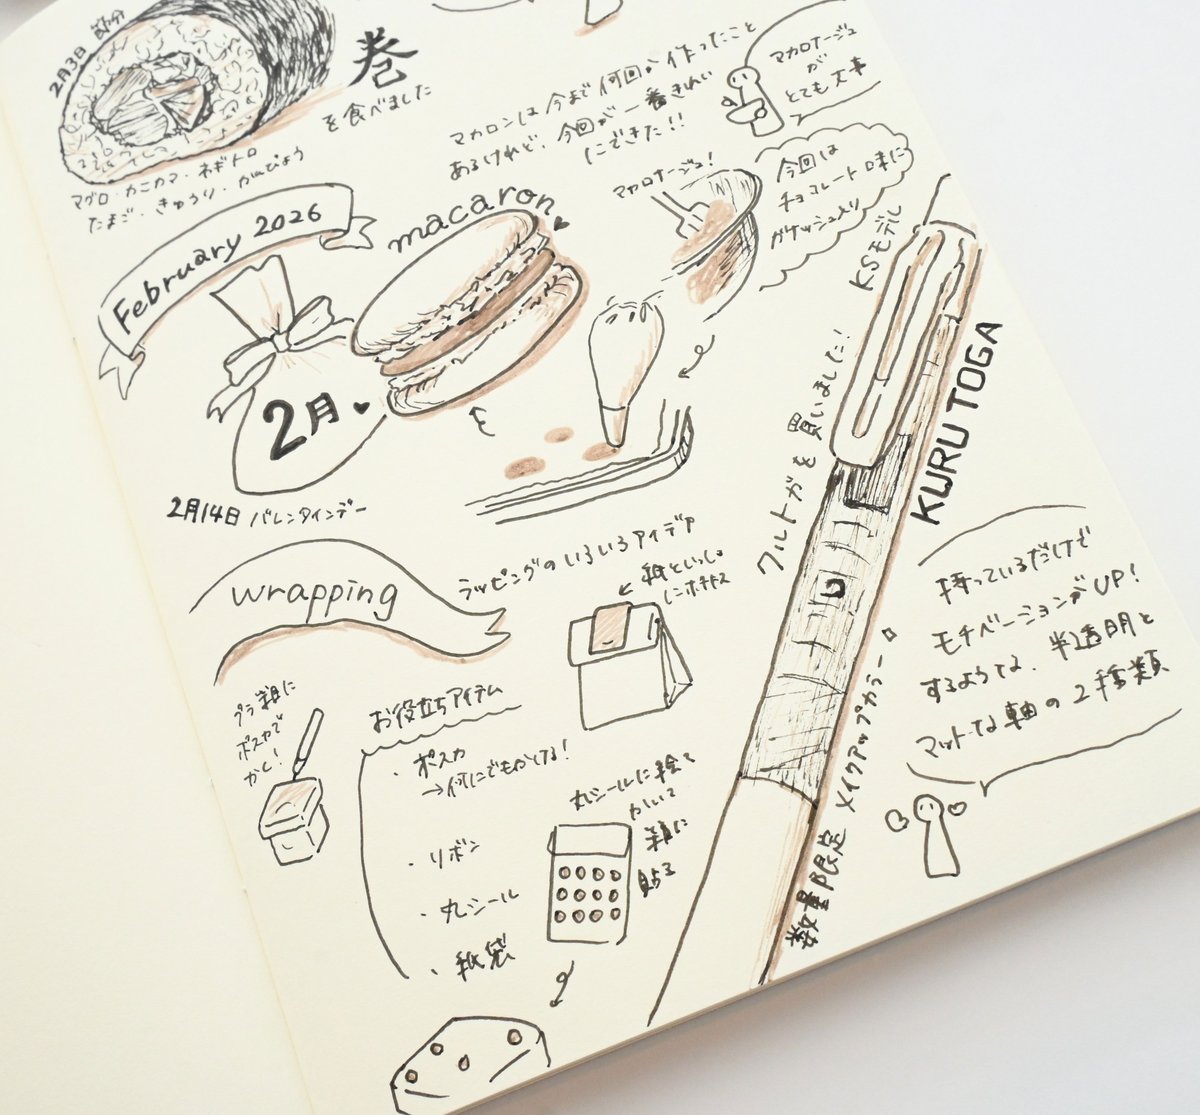 2月3日 節分
巻
を食べました
マグロ・カニカマ・ネギトロ
たまご・きゅうり・かんぴょう
February 2026
2月
2月14日 バレンタインデー
マカロンは今まで何回か作ったこと
あるけれど、今回が一番きれい
にできた!!
macaron
マカロナージュ
が
とても大事
マカロナージュ!
今回は
チョコレート味に
ガナッシュより
KSモデル
クルトガを買いました!
KURU TOGA
数量限定 メイクアップカラー
持っているだけで
モチベーションがUP!
するような、半透明と
マットな軸の2種類
wrapping
ラッピングのいろいろアイデア
紙といっしょ
にホチキス
プラ箱に
ポスカで
かく!
お役立ちアイテム
・ポスカ
→何にでもかける!
・リボン
・丸シール
・紙袋
丸シールに絵を
かいて
箱に
貼る